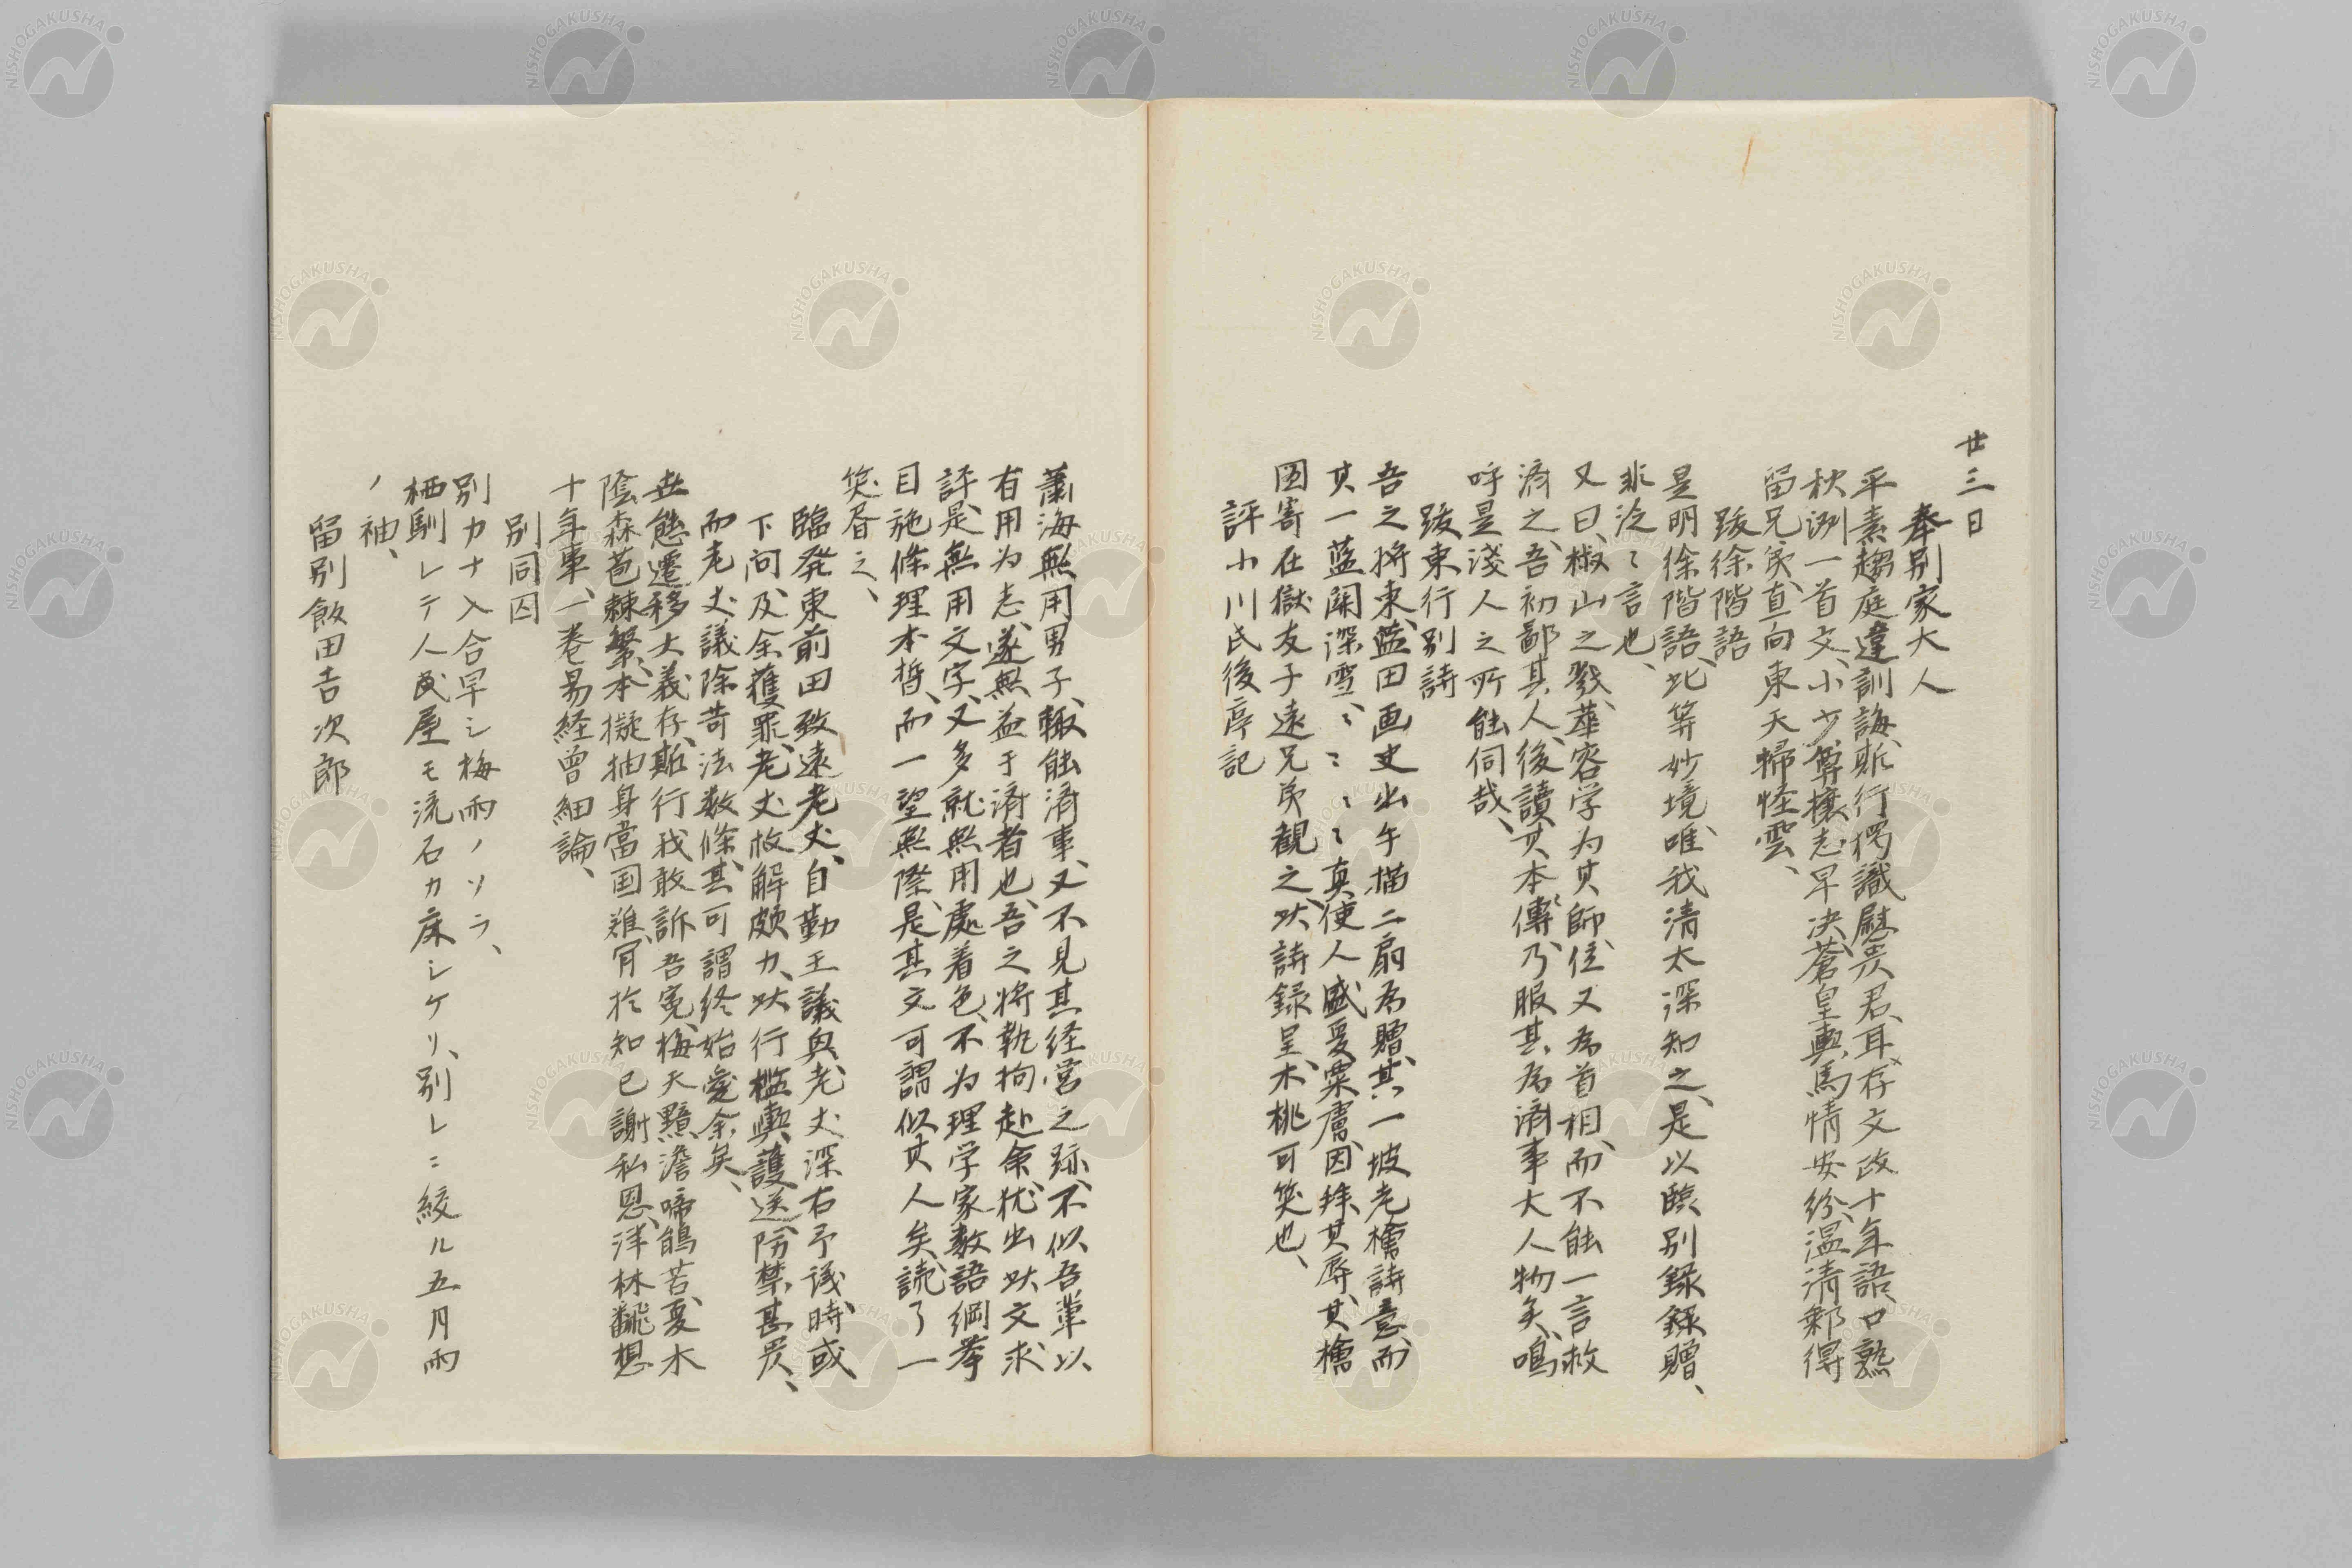 廿三日
奉別家大人
平素趨庭違訓誨、斯行獨識慰嚴君、耳存文政十年語、口熟
秋洌一首文、小少尊攘志早决、蒼皇輿馬情安紛、温清剰得
留兄弟、直向東天掃怪雲、
跋徐階語
是明徐階語、此等妙境、唯我清太深知之、是以臨別錄贈、
非泛〻言也、
又曰、椒山之戮、華容学为其師、位又為首相、而不能一言救
済之、吾初鄙其人、後讀其本傳、乃服其為済事大人物矣、嗚
呼是淺人之所能伺哉、
跋東行別詩
吾之将東、藍田画史出午描二扇為贈、其一坡老檐詩意、而
其一藍関深雪、〻〻〻〻真使人盛夏粟膚、因拜其辱、其檐
图寄在獄友子遠兄弟觀之、此詩録呈、木桃可笑也、
評小川氏後序記
蕭海無用男子、輙能済事、又不見其経営之跡、不似吾輩以
有用为志、遂無益于済者也、吾之将執拘赴余、犹出此文求
評、是無用文字、又多就無用處着色、不为理学家数語綱挙
目施條理本晢、而一望無際、是其文可謂似其人矣、読了一
笑届之、
臨発東前田致遠老丈、自勤王議與老丈深右予议、時或
下问、及余獲罪、老丈枚解頗力、此行檻輿護送、防禁甚嚴、
而老丈議除苛法数條、其可謂終始愛余矣、
世態遷移大義存、斯行我敢訴吾寃、梅天黯澹啼鵑苦、夏木
陰森苞棘繁、本擬抽身當国難、肎於知己謝私恩、泮林翻想
十年事、一巻易経曾細論、
別同囚
別カナ入合早シ梅雨ノソラ、
栖馴レテ人武屋モ流石カ床シケリ、別レニ絞ル五月雨
ノ袖、
留別飯田吉次郎